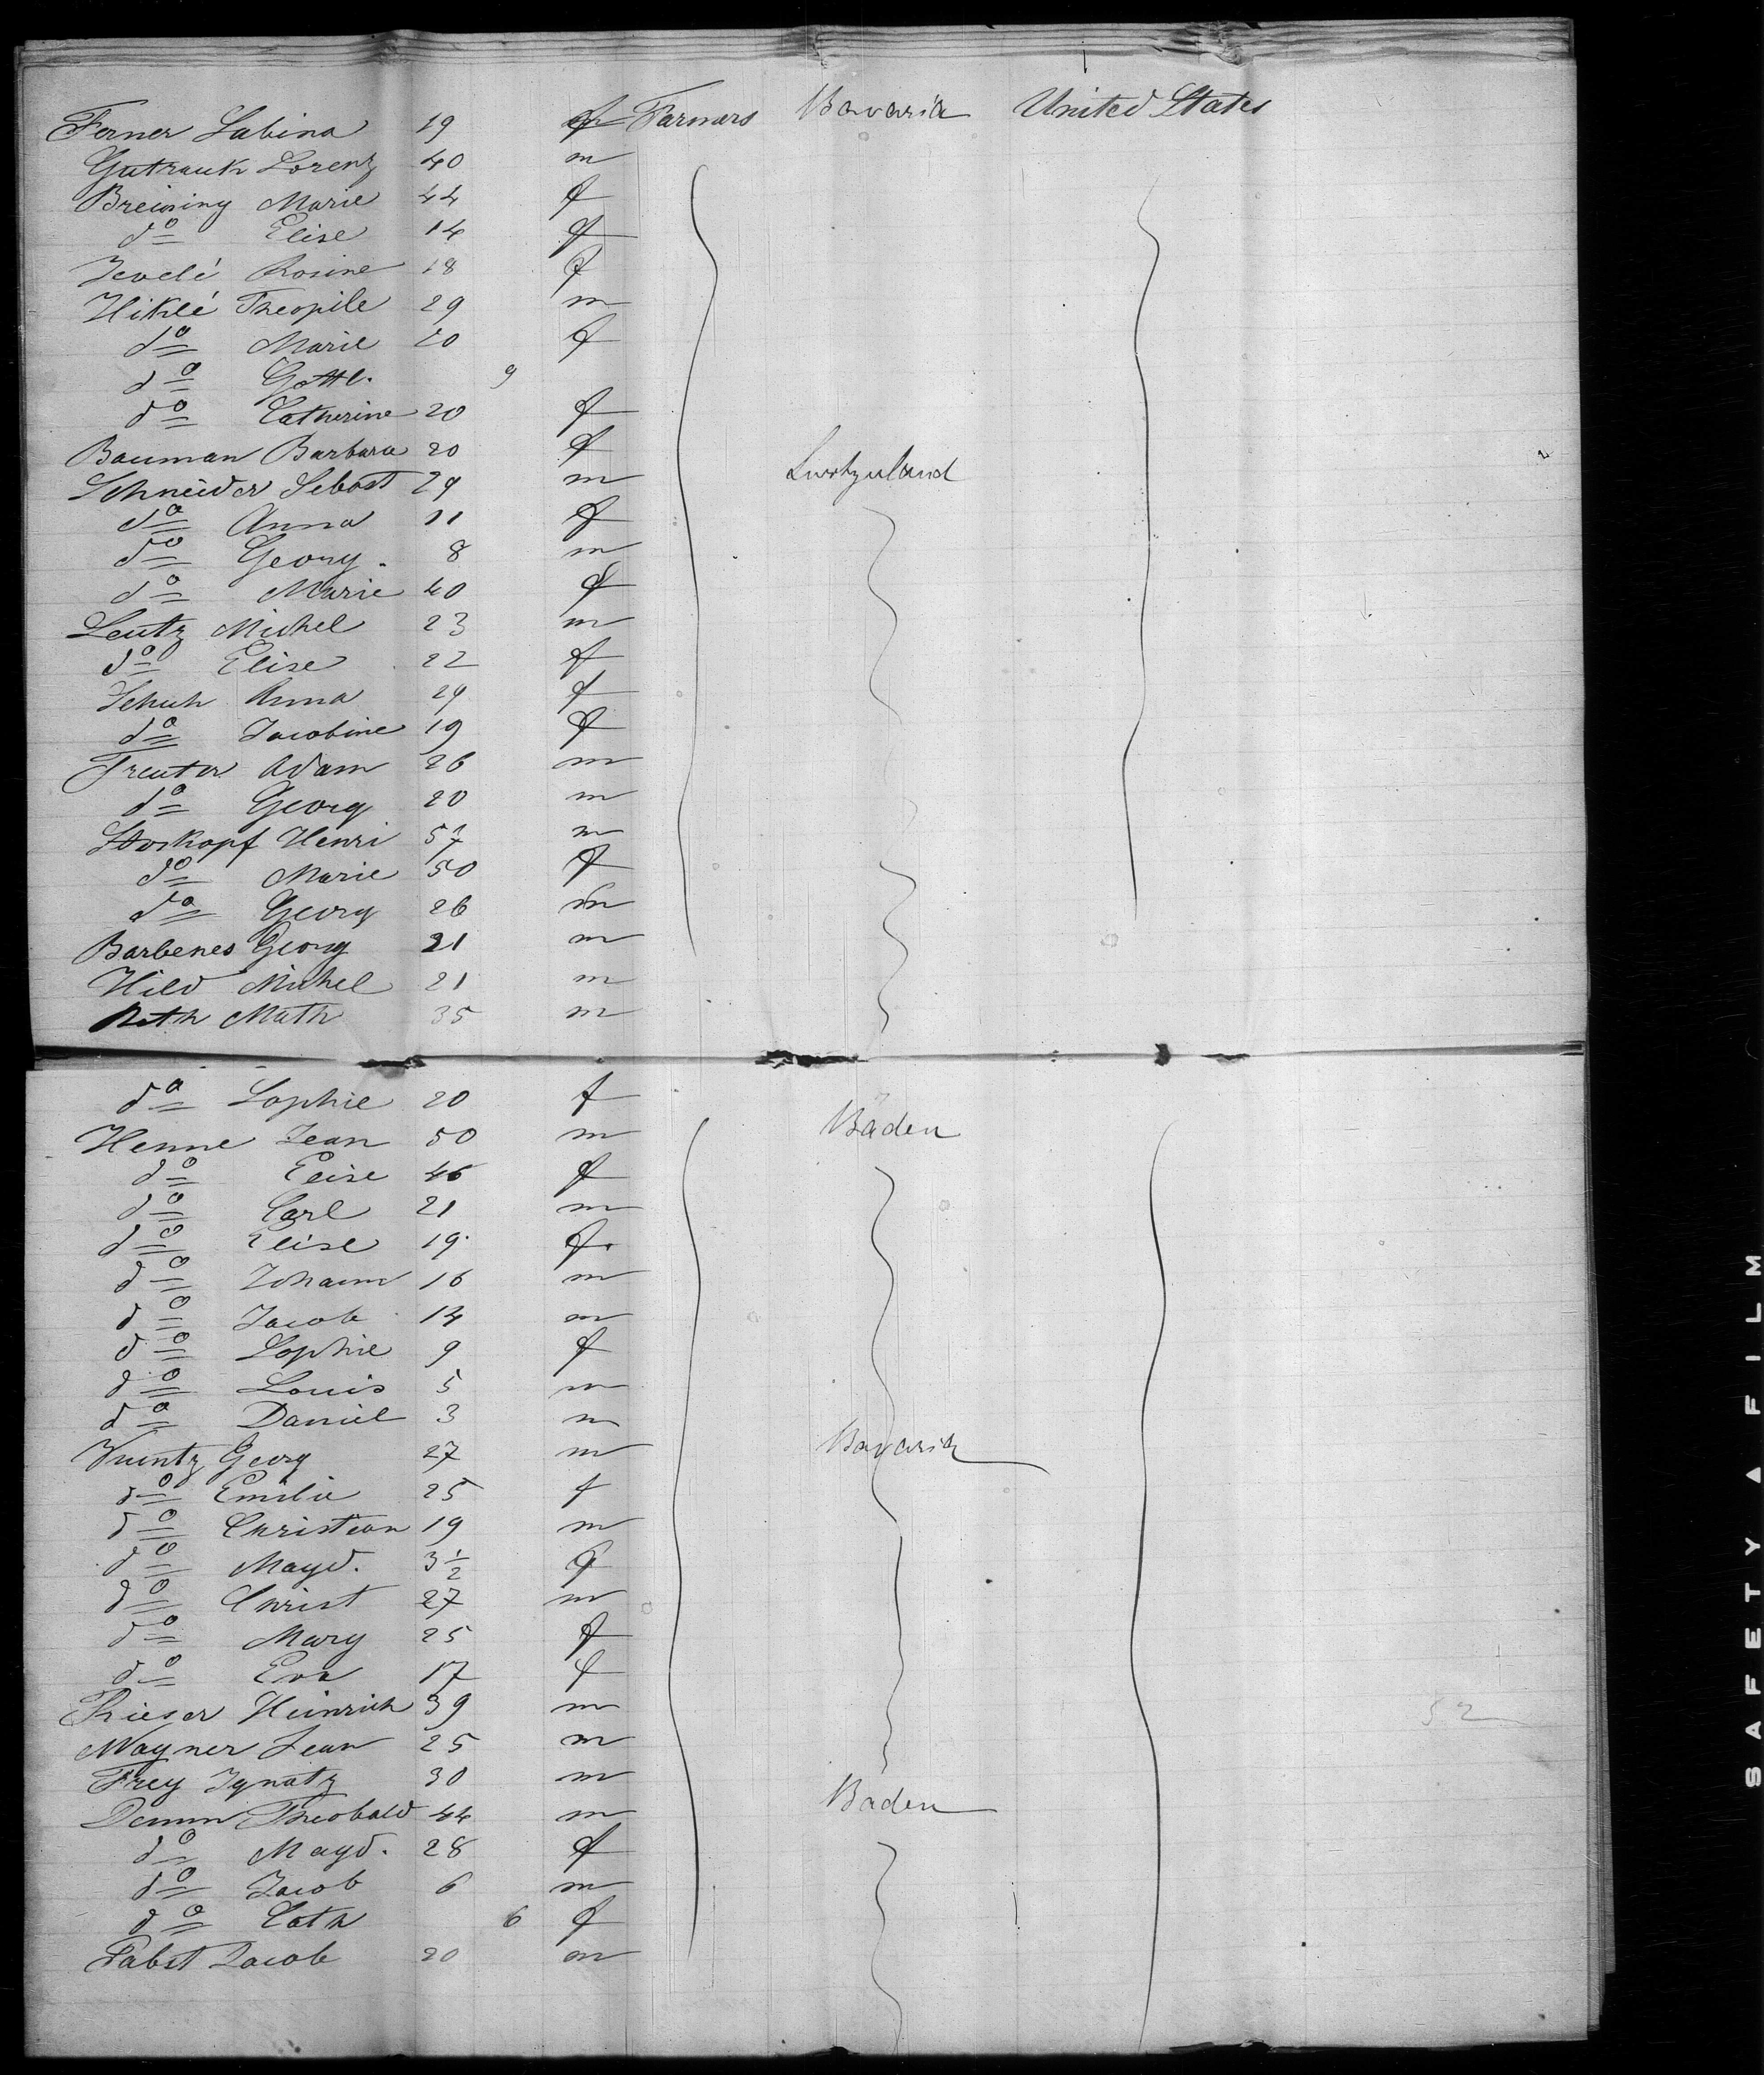 Ferner Sabina 19 f Farmers Bavaria United States
Gutrauk Lorenz 40 m
Breining Marie 44 f
do Elise 14 f
Zevelé Rosine 18 f
Hiklé Theopile 29 m
do Marie 20 f
do Gottl. 9
do Catherine 20 f
Bauman Barbara 20 f
Schneider Sebast 29 m Switzuland
do Anna 11 f
do Georg. 8 m
do Marie 40 f
Leutz Michel 23 m
do Elise 22 f
Schuh Anna 29 f
do Jacobine 19 f
Treuter Adam 26 m
do Georg 20 m
Stoskopf Henri 57 m
do Marie 50 f
do Georg 26 m
Barbenes Georg 21 m
Hild Michel 21 m
Roth Math 35 m
do Sophie 20 f
Henne Jean 50 m Baden
do Elise 46 f
do Carl 21 m
do Elise 19 f.
do Johann 16 m
do Jacob 14 m
do Sophie 9 f
do Louis 5 m
do Daniel 3 m
Wuntz Georg 27 m Bavaria
do Emilie 25 f
do Christean 19 m
do Magd. 3 1/2 f
do Christ 27 m
do Mary 25 f
do Eva 17 f
Rieser Heinrich 39 m 52
Wagner Jean 25 m
Frey Ignatz 30 m
Damm Theobald 44 m Baden
do Magd. 28 f
do Jacob 6 m
do Cath 6 f
Pabst Jacob 20 m
SAFETY ▲ FILM